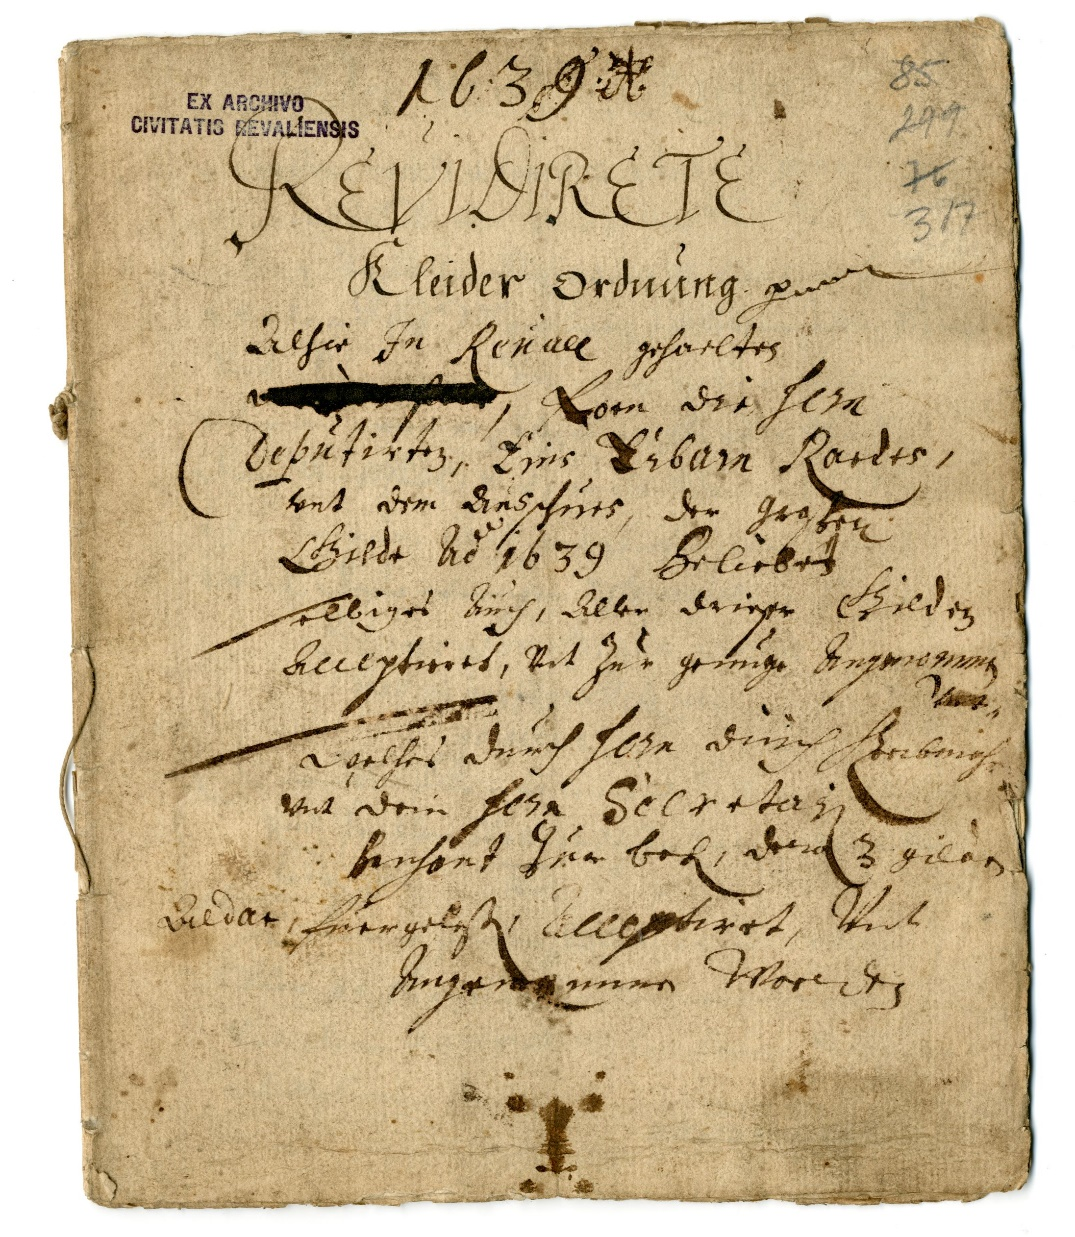 1639
EX ARCHIVO
CIVITATIS REVALIENSIS
85
299
76
317
REVIDIRETE
Kleider Ordnung
Alhie In Reuall gehaelten
die Hern
Deputirten, Eins Erbarn Raedes,
vnt dem Ausschues, der Groten
Gilde Ao 1639 Beliebet
selbiges Auch, Aller drieer Gilden
Acceptieret, Vnt Zur genuge Angenommen
welches durch Hern
vnt dem Hern Secretari
3 gilden
Acceptiret, Vnt
Angenommen Worden